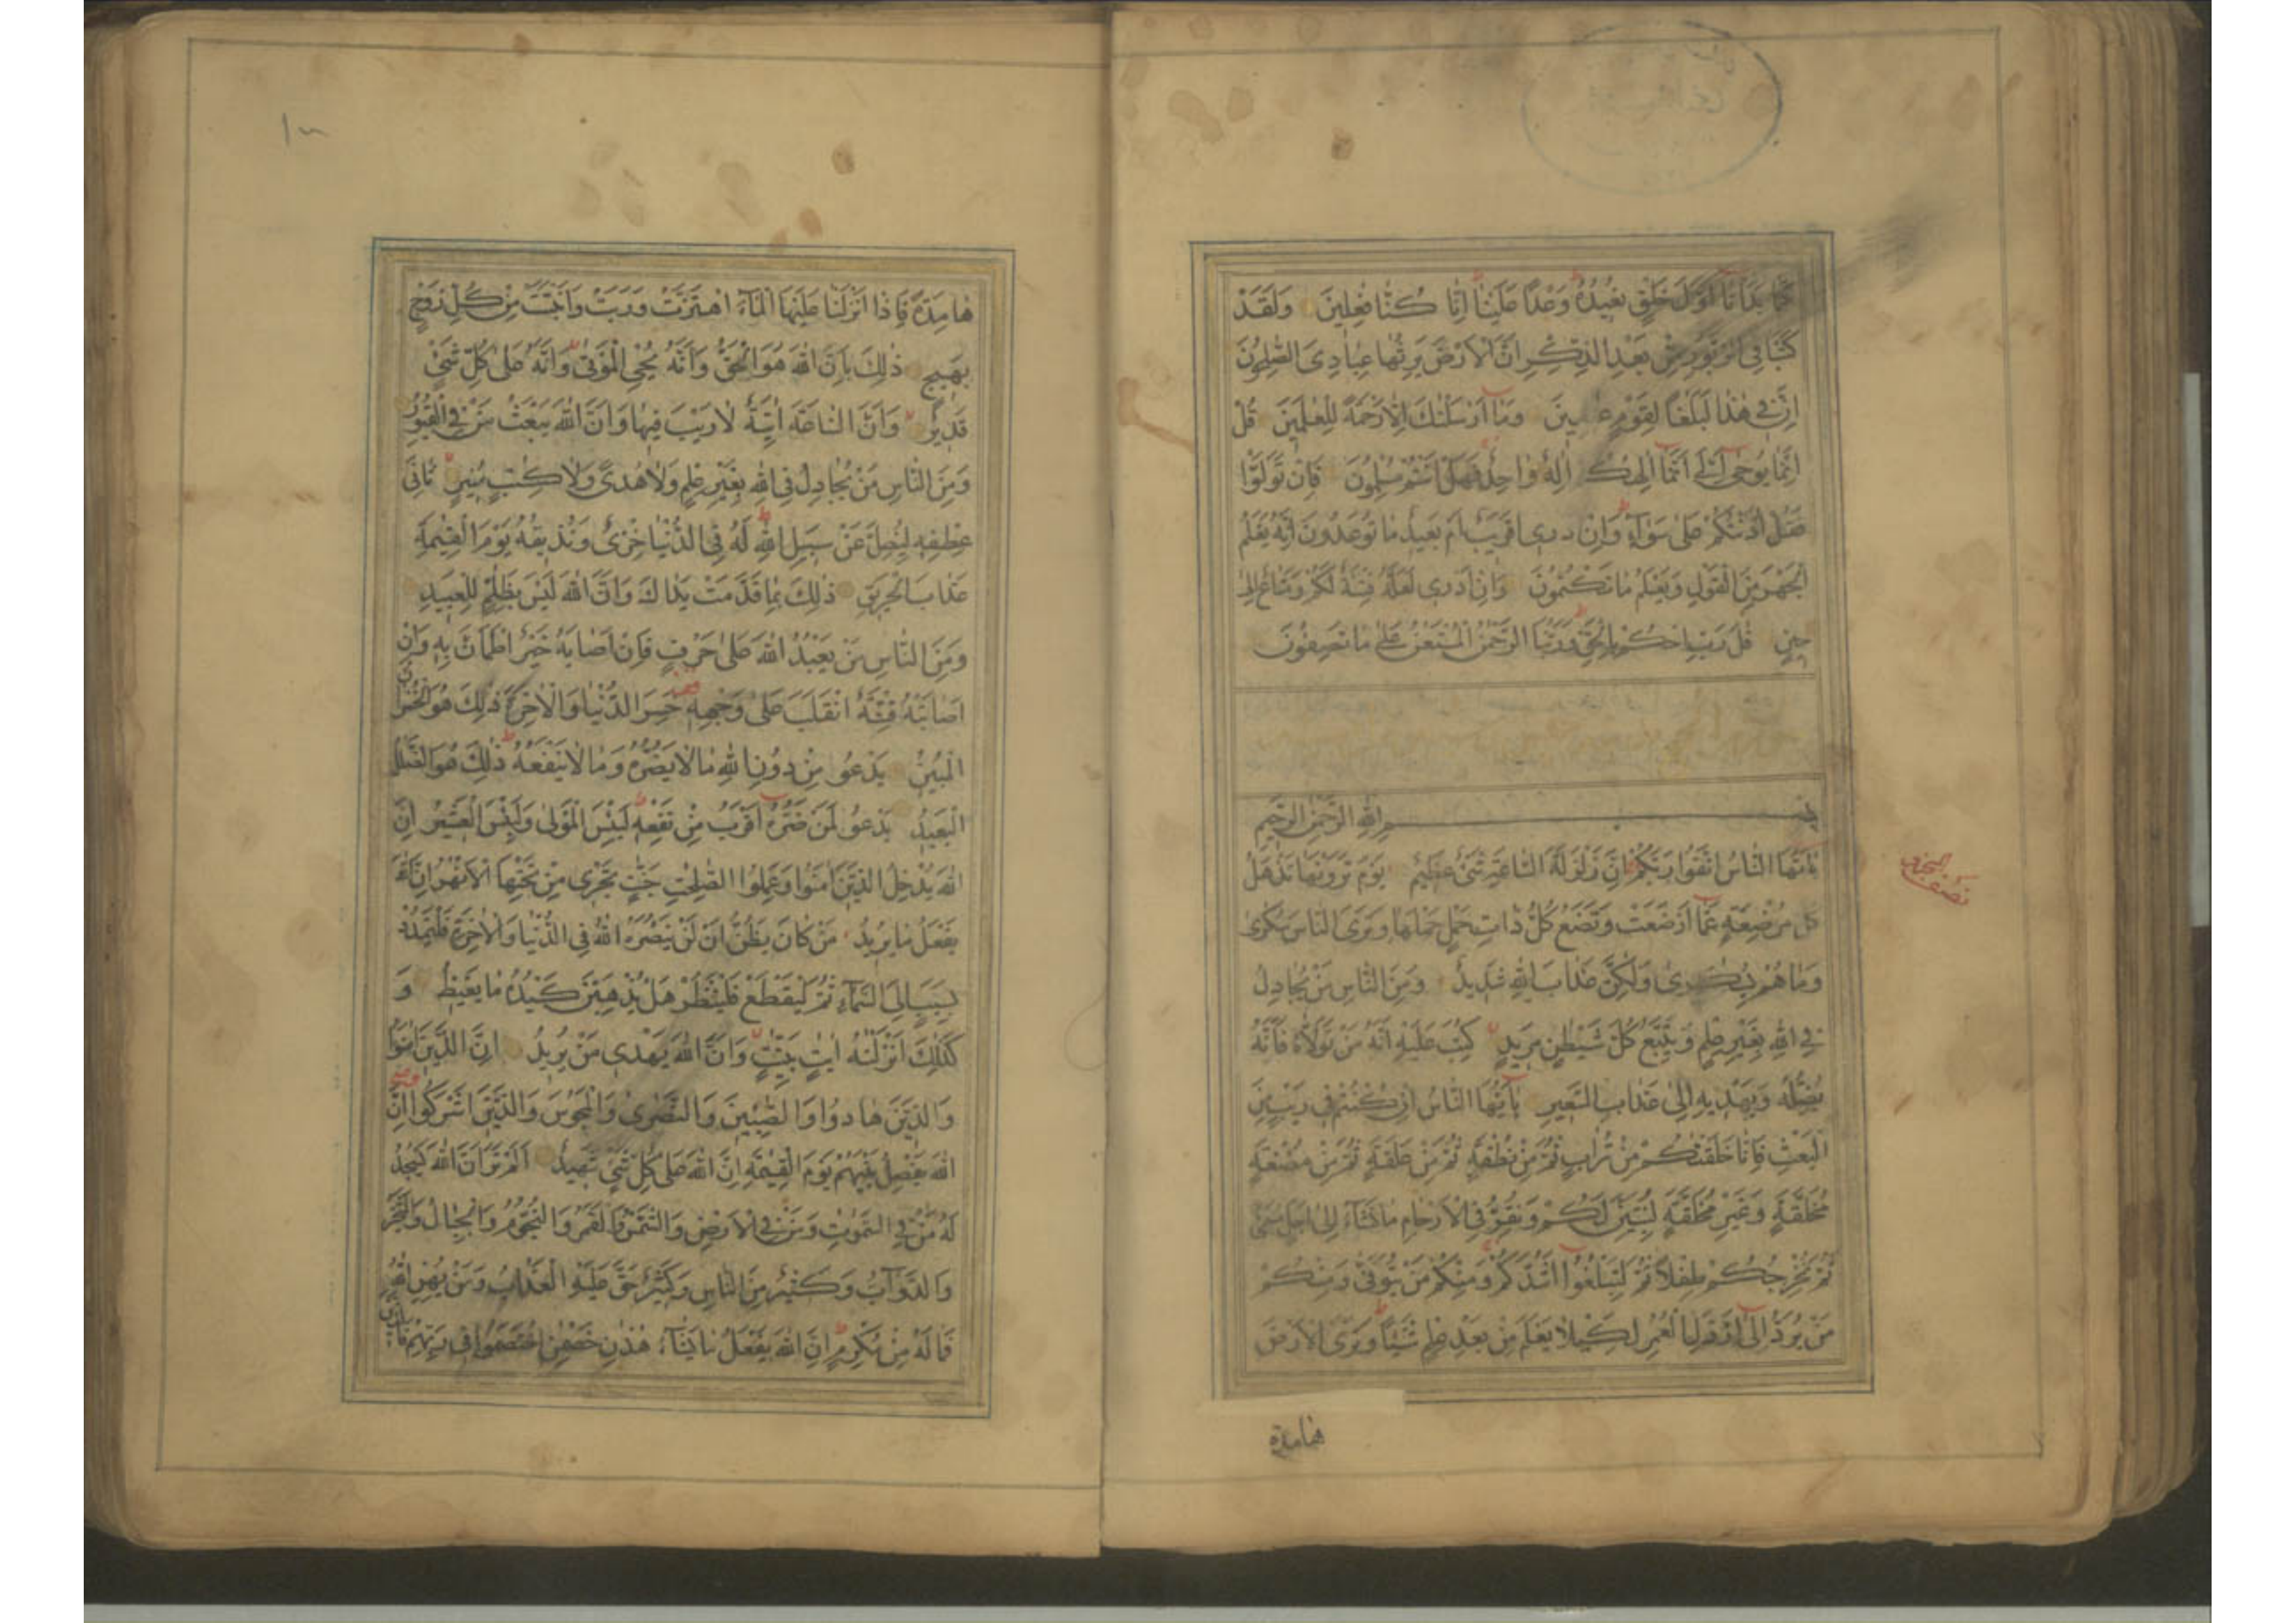 كَمَا بَدَأْنَا أَوَّلَ خَلْقٍ نُعِيدُهُ وَعْدًا عَلَيْنَا إِنَّا كُنَّا فٰعِلِينَ وَلَقَدْ
كَتَبْنَا فِي الزَّبُورِ مِنْ بَعْدِ الذِّكْرِ أَنَّ الْأَرْضَ يَرِثُهَا عِبَادِيَ الصّٰلِحُونَ
إِنَّ فِي هٰذَا لَبَلٰغًا لِقَوْمٍ عٰبِدِينَ وَمَا أَرْسَلْنٰكَ إِلَّا رَحْمَةً لِلْعٰلَمِينَ قُلْ
إِنَّمَا يُوحىٰ إِلَيَّ أَنَّمَا إِلٰهُكُمْ إِلٰهٌ وٰاحِدٌ فَهَلْ أَنْتُمْ مُسْلِمُونَ فَإِنْ تَوَلَّوْا
فَقُلْ آذَنْتُكُمْ عَلىٰ سَوَآءٍ وَإِنْ أَدْرِي أَقَرِيبٌ أَمْ بَعِيدٌ مَا تُوعَدُونَ إِنَّهُ يَعْلَمُ
الْجَهْرَ مِنَ الْقَوْلِ وَيَعْلَمُ مَا تَكْتُمُونَ وَإِنْ أَدْرِي لَعَلَّهُ فِتْنَةٌ لَكُمْ وَمَتَاعٌ إِلىٰ
حِينٍ قٰلَ رَبِّ احْكُمْ بِالْحَقِّ وَرَبُّنَا الرَّحْمٰنُ الْمُسْتَعَانُ عَلىٰ مَا تَصِفُونَ
بِسْمِ اللهِ الرَّحْمٰنِ الرَّحِيمِ
يٰأَيُّهَا النَّاسُ اتَّقُوا رَبَّكُمْ إِنَّ زَلْزَلَةَ السَّاعَةِ شَيْءٌ عَظِيمٌ يَوْمَ تَرَوْنَهَا تَذْهَلُ
كُلُّ مُرْضِعَةٍ عَمَّا أَرْضَعَتْ وَتَضَعُ كُلُّ ذَاتِ حَمْلٍ حَمْلَهَا وَتَرَى النَّاسَ سُكٰرىٰ
وَمَا هُمْ بِسُكٰرىٰ وَلٰكِنَّ عَذَابَ اللهِ شَدِيدٌ وَمِنَ النَّاسِ مَنْ يُجَادِلُ
فِي اللهِ بِغَيْرِ عِلْمٍ وَيَتَّبِعُ كُلَّ شَيْطٰنٍ مَرِيدٍ كُتِبَ عَلَيْهِ أَنَّهُ مَنْ تَوَلَّاهُ فَأَنَّهُ
يُضِلُّهُ وَيَهْدِيهِ إِلىٰ عَذَابِ السَّعِيرِ يٰأَيُّهَا النَّاسُ إِنْ كُنْتُمْ فِي رَيْبٍ مِنَ
الْبَعْثِ فَإِنَّا خَلَقْنٰكُمْ مِنْ تُرَابٍ ثُمَّ مِنْ نُطْفَةٍ ثُمَّ مِنْ عَلَقَةٍ ثُمَّ مِنْ مُضْغَةٍ
مُخَلَّقَةٍ وَغَيْرِ مُخَلَّقَةٍ لِنُبَيِّنَ لَكُمْ وَنُقِرُّ فِي الْأَرْحَامِ مَا نَشَآءُ إِلىٰ أَجَلٍ مُسَمًّى
ثُمَّ نُخْرِجُكُمْ طِفْلًا ثُمَّ لِتَبْلُغُوا أَشُدَّكُمْ وَمِنْكُمْ مَنْ يُتَوَفّىٰ وَمِنْكُمْ
مَنْ يُرَدُّ إِلىٰ أَرْذَلِ الْعُمُرِ لِكَيْلَا يَعْلَمَ مِنْ بَعْدِ عِلْمٍ شَيْئًا وَتَرَى الْأَرْضَ
هامدة
هَامِدَةً فَإِذَا أَنْزَلْنَا عَلَيْهَا الْمَآءَ اهْتَزَّتْ وَرَبَتْ وَأَنْبَتَتْ مِنْ كُلِّ زَوْجٍ
بَهِيجٍ ذٰلِكَ بِأَنَّ اللهَ هُوَ الْحَقُّ وَأَنَّهُ يُحْيِ الْمَوْتىٰ وَأَنَّهُ عَلىٰ كُلِّ شَيْءٍ
قَدِيرٌ وَأَنَّ السَّاعَةَ آتِيَةٌ لَا رَيْبَ فِيهَا وَأَنَّ اللهَ يَبْعَثُ مَنْ فِي الْقُبُورِ
وَمِنَ النَّاسِ مَنْ يُجَادِلُ فِي اللهِ بِغَيْرِ عِلْمٍ وَلَا هُدًى وَلَا كِتٰبٍ مُنِيرٍ ثَانِيَ
عِطْفِهِ لِيُضِلَّ عَنْ سَبِيلِ اللهِ لَهُ فِي الدُّنْيَا خِزْيٌ وَنُذِيقُهُ يَوْمَ الْقِيٰمَةِ
عَذَابَ الْحَرِيقِ ذٰلِكَ بِمَا قَدَّمَتْ يَدَاكَ وَأَنَّ اللهَ لَيْسَ بِظَلّٰمٍ لِلْعَبِيدِ
وَمِنَ النَّاسِ مَنْ يَعْبُدُ اللهَ عَلىٰ حَرْفٍ فَإِنْ أَصَابَهُ خَيْرٌ اطْمَأَنَّ بِهِ وَإِنْ
أَصَابَتْهُ فِتْنَةٌ انْقَلَبَ عَلىٰ وَجْهِهِ خَسِرَ الدُّنْيَا وَالْآخِرَةَ ذٰلِكَ هُوَ الْخُسْرَانُ
الْمُبِينُ يَدْعُو مِنْ دُونِ اللهِ مَا لَا يَضُرُّهُ وَمَا لَا يَنْفَعُهُ ذٰلِكَ هُوَ الضَّلٰلُ
الْبَعِيدُ يَدْعُو لَمَنْ ضَرُّهُ أَقْرَبُ مِنْ نَفْعِهِ لَبِئْسَ الْمَوْلىٰ وَلَبِئْسَ الْعَشِيرُ إِنَّ
اللهَ يُدْخِلُ الَّذِينَ آمَنُوا وَعَمِلُوا الصّٰلِحٰتِ جَنّٰتٍ تَجْرِي مِنْ تَحْتِهَا الْأَنْهٰرُ إِنَّ اللهَ
يَفْعَلُ مَا يُرِيدُ مَنْ كَانَ يَظُنُّ أَنْ لَنْ يَنْصُرَهُ اللهُ فِي الدُّنْيَا وَالْآخِرَةِ فَلْيَمْدُدْ
بِسَبَبٍ إِلَى السَّمَآءِ ثُمَّ لْيَقْطَعْ فَلْيَنْظُرْ هَلْ يُذْهِبَنَّ كَيْدُهُ مَا يَغِيظُ وَ
كَذٰلِكَ أَنْزَلْنٰهُ آيٰتٍ بَيِّنٰتٍ وَأَنَّ اللهَ يَهْدِي مَنْ يُرِيدُ إِنَّ الَّذِينَ آمَنُوا
وَالَّذِينَ هَادُوا وَالصّٰبِئِينَ وَالنَّصٰرىٰ وَالْمَجُوسَ وَالَّذِينَ أَشْرَكُوا إِنَّ
اللهَ يَفْصِلُ بَيْنَهُمْ يَوْمَ الْقِيٰمَةِ إِنَّ اللهَ عَلىٰ كُلِّ شَيْءٍ شَهِيدٌ أَلَمْ تَرَ أَنَّ اللهَ يَسْجُدُ
لَهُ مَنْ فِي السَّمٰوٰتِ وَمَنْ فِي الْأَرْضِ وَالشَّمْسُ وَالْقَمَرُ وَالنُّجُومُ وَالْجِبَالُ وَالشَّجَرُ
وَالدَّوَآبُّ وَكَثِيرٌ مِنَ النَّاسِ وَكَثِيرٌ حَقَّ عَلَيْهِ الْعَذَابُ وَمَنْ يُهِنِ اللهُ
فَمَا لَهُ مِنْ مُكْرِمٍ إِنَّ اللهَ يَفْعَلُ مَا يَشَآءُ هٰذَانِ خَصْمٰنِ اخْتَصَمُوا فِي رَبِّهِمْ فَالَّذِينَ